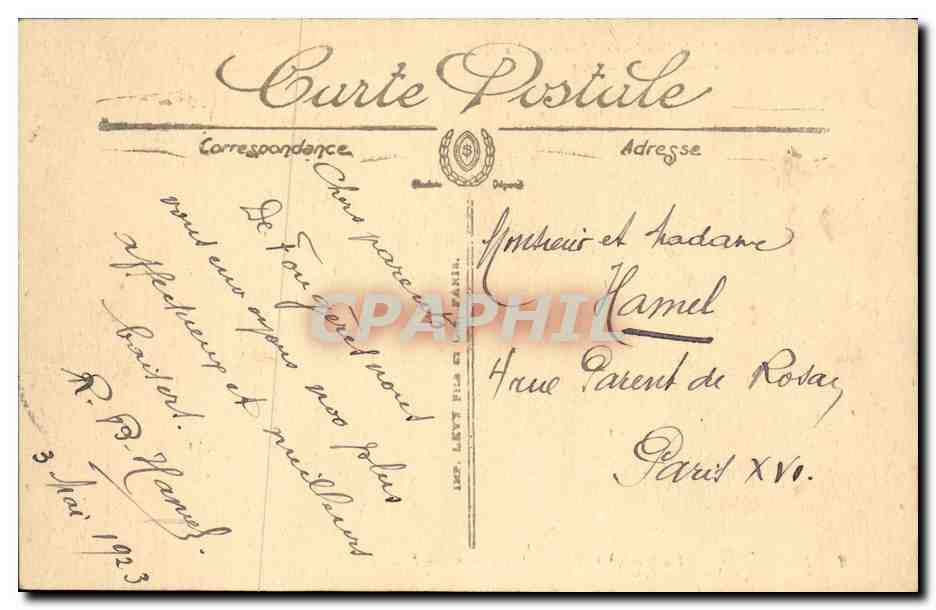 Carte Postale
Correspondance
Adresse
Chers parents
De Fougères nous
vous envoyons nos plus
affectueux et meilleurs
baisers.
R. B. Hamel.
3 Mai 1923
IMP. LEVY FILS ET PARIS.
Monsieur et Madame
Hamel
4 rue Parent de Rosan
Paris XVI.
CPAPHIL